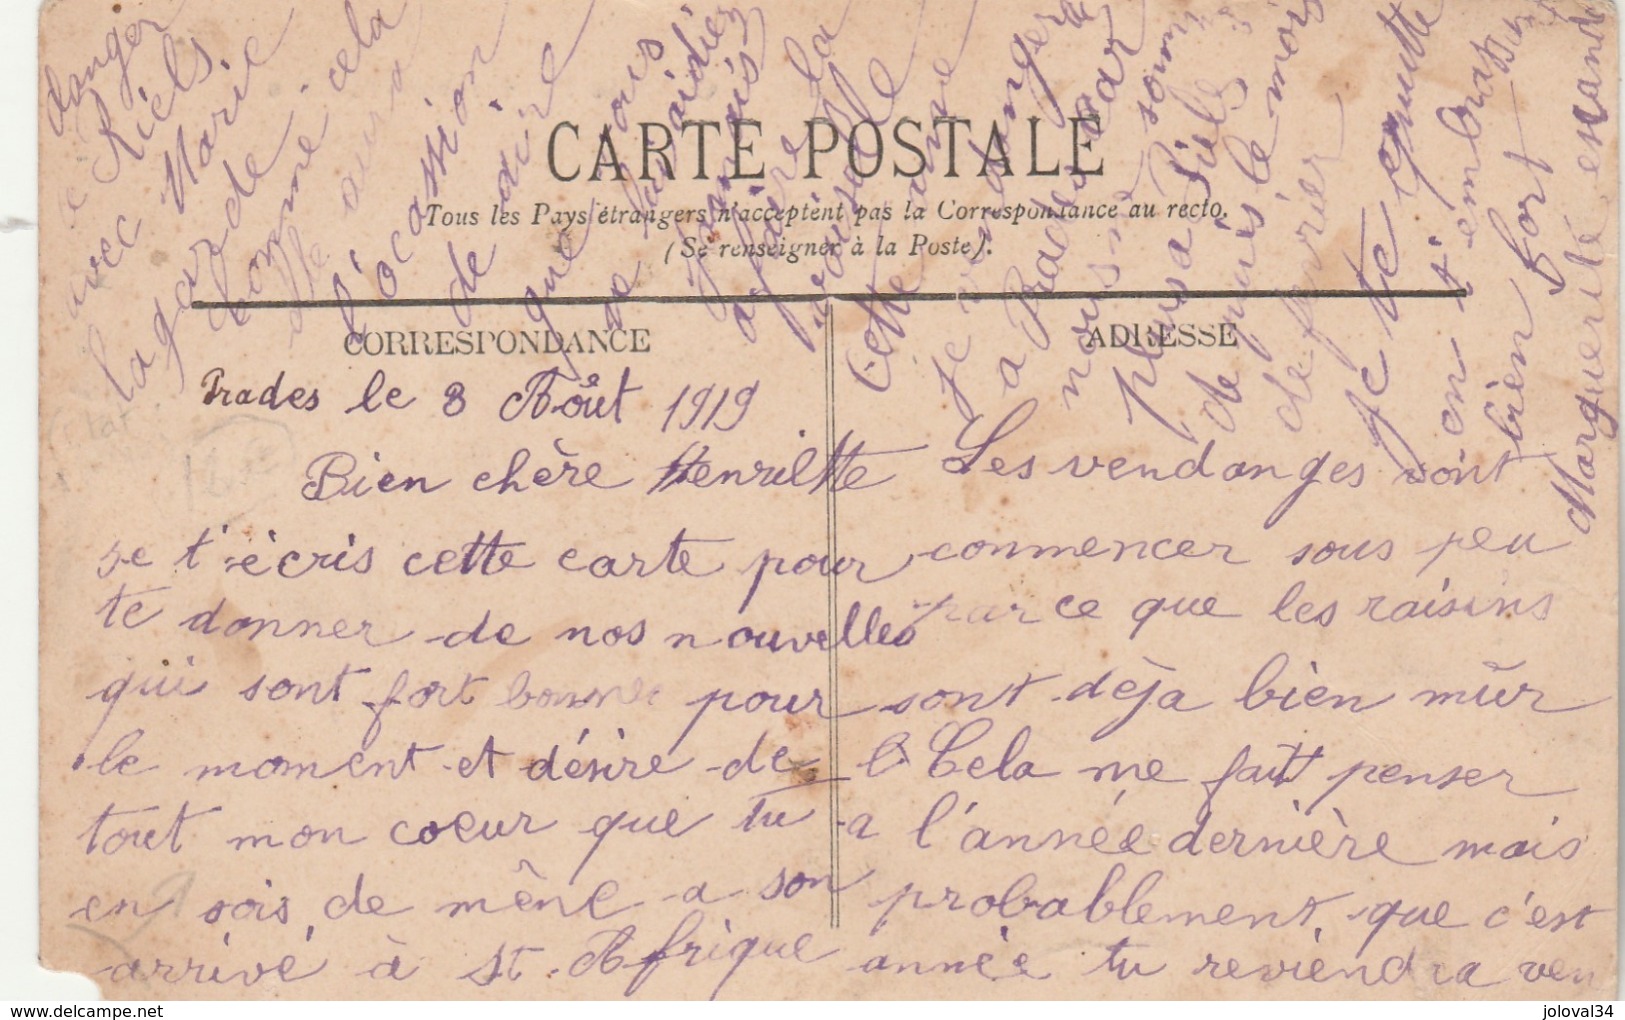 CARTE POSTALE
Tous les Pays étrangers n'acceptent pas la Correspondance au recto.
(Se renseigner à la Poste).
CORRESPONDANCE
ADRESSE
Prades le 8 Août 1919
Bien chère Henriette
se t'écris cette carte pour
te donner de nos nouvelles
qui sont fort bonnes pour
le moment et désire de
tout mon coeur que tu
en sois de même a son
arrivé à St Afrique
Les vendanges sont
commencer sous peu
parce que les raisins
sont déja bien mûr
Cela me fait penser
a l'année dernière mais
probablement que c'est
année tu reviendra ven
danger
avec Marie
lagarde
comme cela
elle aura
l'occasion
de dire
que
jamais
affaire la
cette année
je vendanger
a
nous
plus a
depuis le mois
de fevrier
Je te quitte
en t'embrassant
bien fort
Marguerite
delcampe.net
joloval34